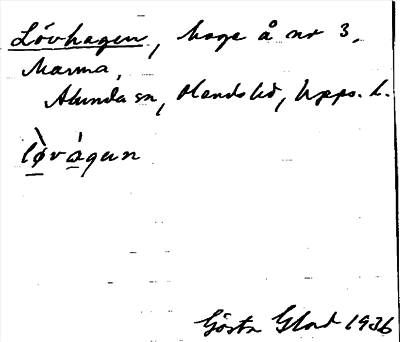 Lövhagen, hage å nr 3,
Marma,
Alunda sn, Olands hd, Upps. l.
lø̀vágen
Gösta Glad 1936